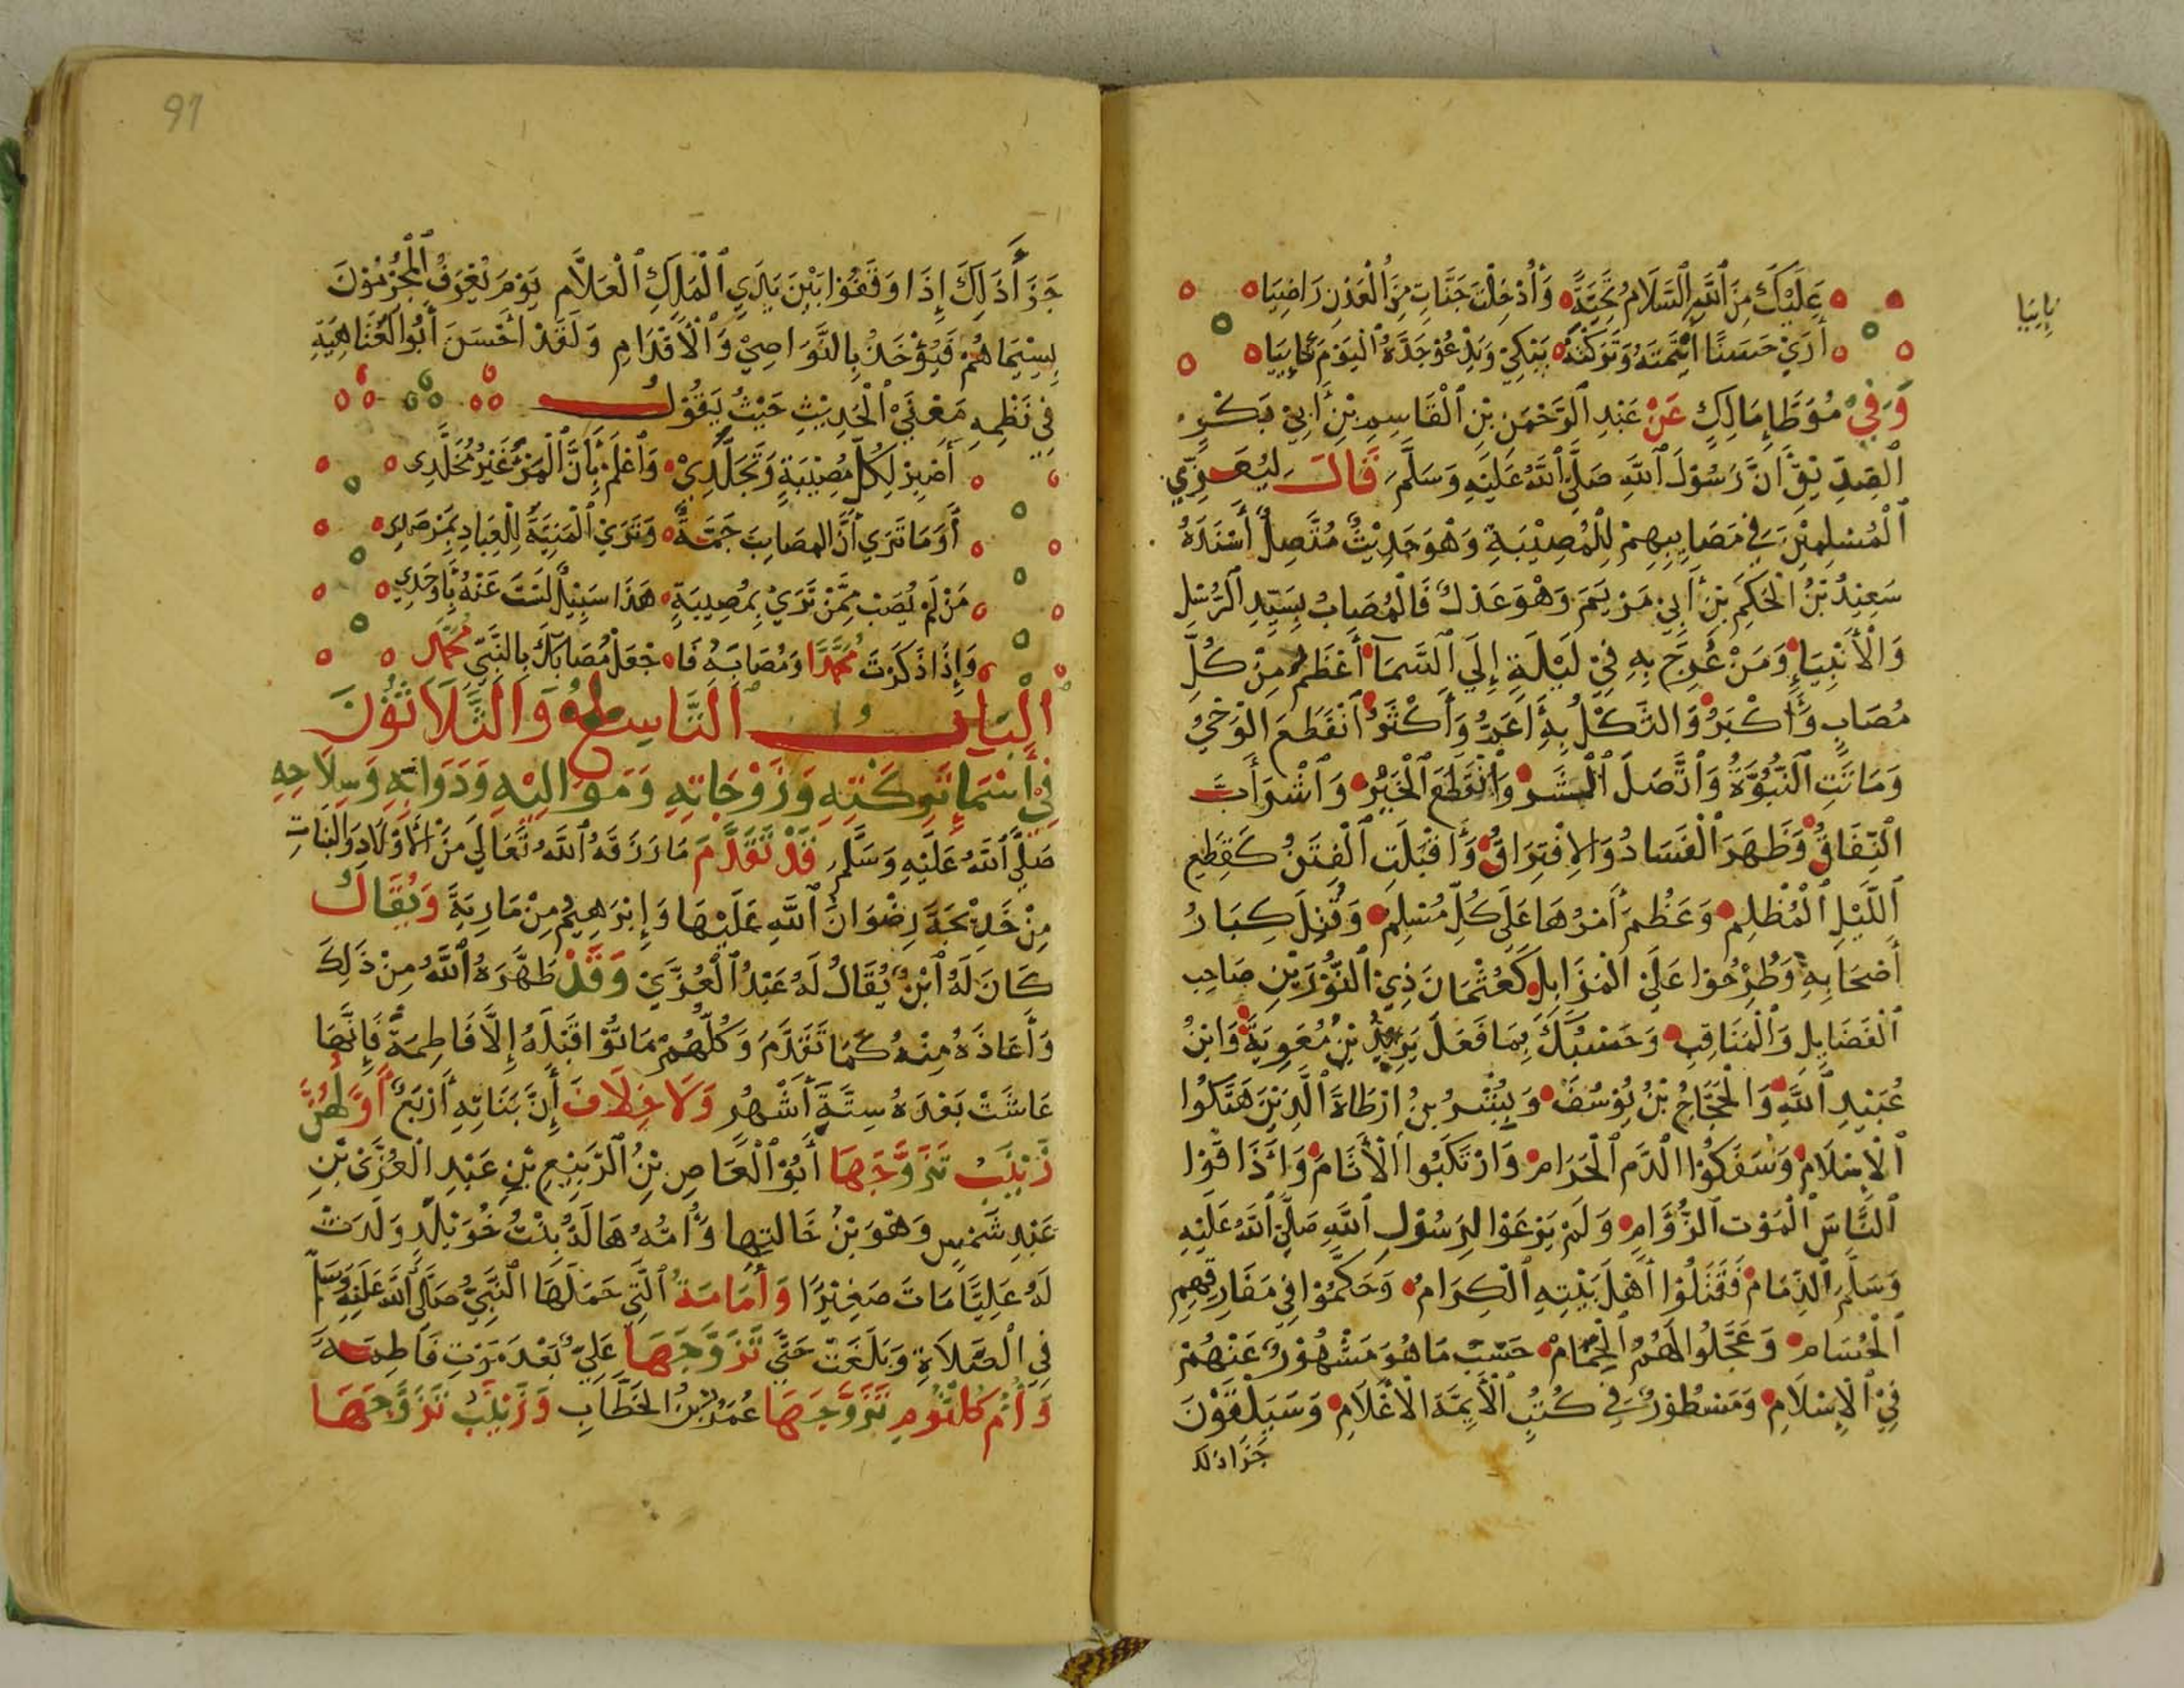 عَلَيْكَ مِنَ ٱللَّهِ ٱلسَّلَامُ تَحِيَّةً وَأُدْخِلْتَ جَنَّاتٍ مِنَ ٱلْعَدْنِ رَاضِيَا
أَرَيْ حَسَنًا أَيْتَمْتَهُ وَتَرَكْتَهُ يَبْكِيْ وَيَدْعُوْ جَدَّهُ ٱلْيَوْمَ
وَفِيْ مُوَطَّإِ مَالِكٍ عَنْ عَبْدِ ٱلرَّحْمَنِ بْنِ ٱلْقَاسِمِ بْنِ أَبِيْ بَكْرٍ
ٱلصِّدِّيْقِ أَنَّ رَسُوْلَ ٱللَّهِ صَلَّى ٱللَّهُ عَلَيْهِ وَسَلَّمَ قَالَ لِيُعَزِّي
ٱلْمُسْلِمِيْنَ فِي مَصَايِبِهِمْ لِلْمُصِيْبَةِ وَهْوَ حَدِيْثٌ مُتَّصِلٌ أَسْنَدَهُ
سَعِيْدُ بْنُ ٱلْحَكَمِ بْنِ أَبِيْ مَرْيَمَ وَهْوَ عَدْلٌ فَالْمُصَابُ بِسَيِّدِ ٱلرُّسْلِ
وَالْأَنْبِيَاءِ وَمَنْ عُرِجَ بِهِ فِيْ لَيْلَةٍ إِلَي ٱلسَّمَا أَعْظَمُ مِنْ كُلِّ
مُصَابٍ وَأَكْبَرُ وَالثَّكْلُ بِهِ أَعَبَرُ وَأَكْثَرُ ٱنْقَطَعَ الْوَحْيُ
وَمَاتَتِ ٱلنُّبُوَّةُ وَٱتَّصَلَ ٱلْشَر وَٱنْقَطَعَ ٱلْخَيْرُ وَٱشْرَأَبَّ
ٱلنِّفَاقُ وَظَهَرَ ٱلْفَسَادُ وَالِافْتِرَاقُ وَأَقْبَلَتِ ٱلْفِتَنُ كَقِطَعِ
ٱللَّيْلِ ٱلْمُظْلِمِ وَعَظُمَ أَمْرُهَا عَلَى كُلِّ مُسْلِمٍ وَقُتِلَ كِبَارُ
أَصْحَابِهِ وَطُرِحُوْا عَلَيْ الْمَزَابِلِ كَعُثْمَانَ ذِيْ ٱلنُّوْرَيْنِ صَاحِبِ
ٱلْفَضَايِلِ وَٱلْمَنَاقِبِ وَحَسْبُكَ بِمَا فَعَلَ يَزِيْدُ بْنُ مُعَوِيَةَ وَابْنُ
عُبَيْدِ ٱللَّهِ وَالْحَجَّاجُ بْنُ يُوْسُفَ وَبِشْرُ بْنُ ارْطَاةَ ٱلَّذِيْنَ هَتَكُوْا
ٱلْإِسْلَامَ وَسَفَكُوْا الدَّمَ ٱلْحَرَامَ وَارْتَكَبُوا ٱلْأَثَامَ وَأَذَاقُوْا
ٱلنَّاسَ ٱلْمَوْتَ ٱلزُّؤَامَ وَلَمْ يَرْعَوْا لِرَسُوْلِ ٱللَّهِ صَلَّى ٱللَّهُ عَلَيْهِ
وَسَلَّمَ ٱلذِّمَامَ فَقَتَلُوْا أَهْلَ بَيْتِهِ ٱلْكِرَامَ وَحَكَّمُوْا فِي مَفَارِقِهِمِ
ٱلْحُسَامَ وَعَجَّلُوْا لَهُمُ ٱلْحِمَامَ حَسْبَ مَا هُوَ مَشْهُوْرٌ عَنْهُمْ
فِيْ ٱلْإِسْلَامِ وَمَسْطُوْرٌ فِي كُتُبِ ٱلْأَيِمَّةِ الْأَعْلَامِ وَسَيَلْقَوْنَ
جَزَاذلك
91
جَزَأَ ذَلِكَ إِذَا وَقَفُوْا بَيْنَ يَدَيِ ٱلْمَلِكِ ٱلْعَلَّامِ يَوْمَ يُعْرَفُ ٱلْمُجْرِمُوْنَ
بِسِيْمَاهُمْ فَيُؤْخَذُ بِالنَّوَاصِيْ وَٱلْأَقْدَامِ وَلَقَدْ أَحْسَنَ أَبُو الْعَتَاهِيَةِ
فِي نَظْمِهِ مَعْنَيْ ٱلْحَدِيْثِ حَيْثُ يَقُوْلُ
أَصْبِرْ لِكُلِّ مُصِيْبَةٍ وَتَجَلَّدِيْ وَٱعْلَمْ بِأَنَّ ٱلْمَرْءَ غَيْرُ مُخَلَّدِى
أَوَمَا تَرَي أَنَّ المصَايِبَ جَمَّةٌ وَتَرَيْ ٱلْمَنِيَّةَ لِلْعِبَادِ بِمَرْصَدِى
مَنْ لَمْ يُصَبْ مِمَّنْ تَرَيْ بِمُصِيبَةٍ هَذَا سَبِيْلٌ لَسْتَ عَنْهُ بِأَوْحَدِي
وَإِذَا ذَكَرْتَ مُحَمَّدًا وَمُصَابَهُ فَاجْعَلْ مُصَابَكَ بِالنَّبِيِّ مُحَمَّدِ
اَلْبَابُ اَلتَّاسِعُ وَالثَّلَاثُوْنَ
فِيْ أَسْمَائِهِ وَكُنَتِهِ وَزَوْجَاتِهِ وَمَوَالِيْهِ وَدَوَابِّهِ وَسِلَاحِهِ
صَلَّى ٱللَّهُ عَلَيْهِ وَسَلَّمَ قَدْ تَقَدَّمَ مَا رَزَقَهُ ٱللَّهُ تَعَالَي مِنَ الْأَوْلَادِ وَالْبَنَاتِ
مِنْ خَدِيْجَةَ رِضْوَانُ ٱللَّهِ عَلَيْهَا وَإِبْرَهِيْمُ مِنْ مَارِيَةَ وَيُقَالُ
كَانَ لَهُ ٱبْنٌ يُقَالُ لَهُ عَبْدُ ٱلْعُزَّيْ وَقَدْ طَهَّرَهُ ٱللَّهُ مِنْ ذَلِكَ
وَأَعَاذَهُ مِنْهُ كَمَا تَقَدَّمَ وَكُلُّهُمْ مَاتُوْا قَبْلَهُ إِلَّا فَاطِمَةُ فَإِنَّهَا
عَاشَتْ بَعْدَهُ سِتَّةَ أَشْهُرٍ وَلَا خِلَافَ أَنَّ بَنَاتِهِ أَرْبَعٌ أَوَّلُهُنَّ
زَيْنَبُ تَزَوَّجَهَا أَبُوْ ٱلْعَاصِ بْنُ ٱلرَّبِيْعِ بْنِ عَبْدِ ٱلْعُزَّى بْنِ
عَبْدِ شَمْسٍ وَهْوَ بْنُ خَالَتِهَا وَأُمُّهُ هَالَةُ بِنْتُ خُوَيْلِدٍ وَلَدَتْ
لَهُ عَلِيًّا مَاتَ صَغِيْرًا وَأُمَامَةُ ٱلَّتِي حَمَلَهَا ٱلنَّبِيُّ صَلَّى ٱللَّهُ عَلَيْهِ وَسَلَّمَ
فِي ٱلصَّلَاةِ وَبَلَغَتْ حَتَّي تَزَوَّجَهَا عَلِيٌّ بَعْدَ مَوْتِ فَاطِمَةَ
وَأُمُّ كُلْثُومٍ تَزَوَّجَهَا عُمَرُ بْنُ الْخَطَّابِ وَزَيْنَبُ تَزَوَّجَهَا